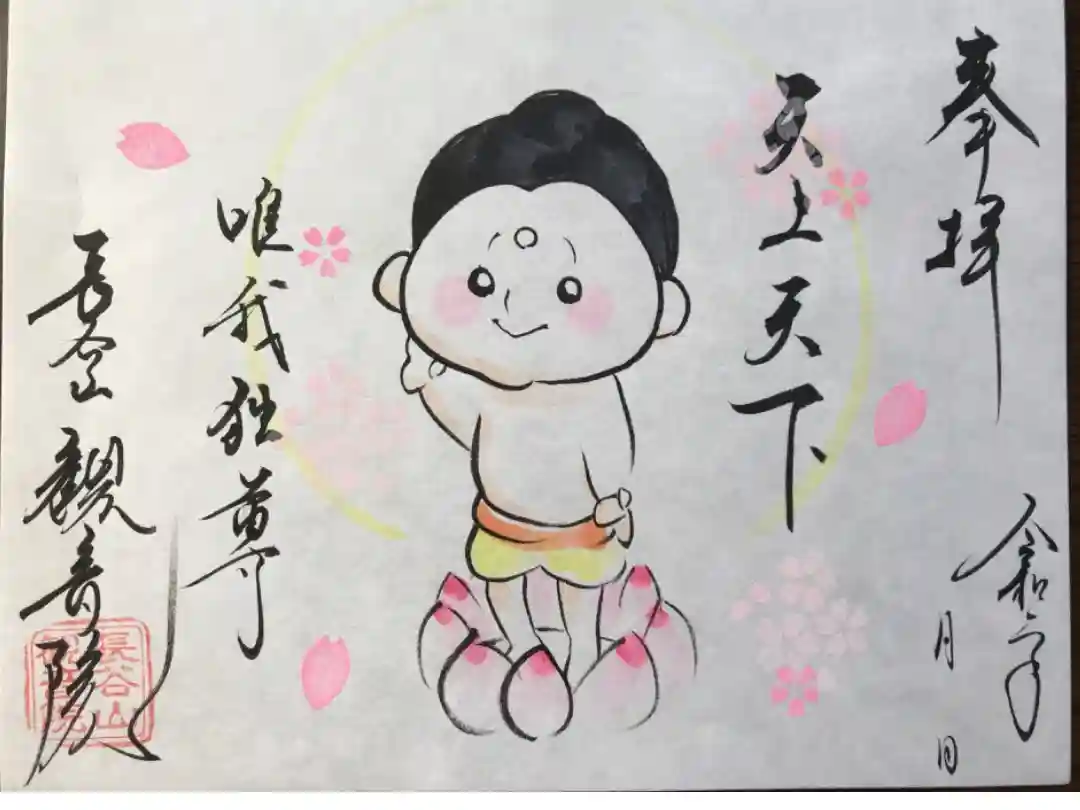 奉拝
令和二年
月 日
天上天下
唯我独尊
長谷山 観音院
長谷山